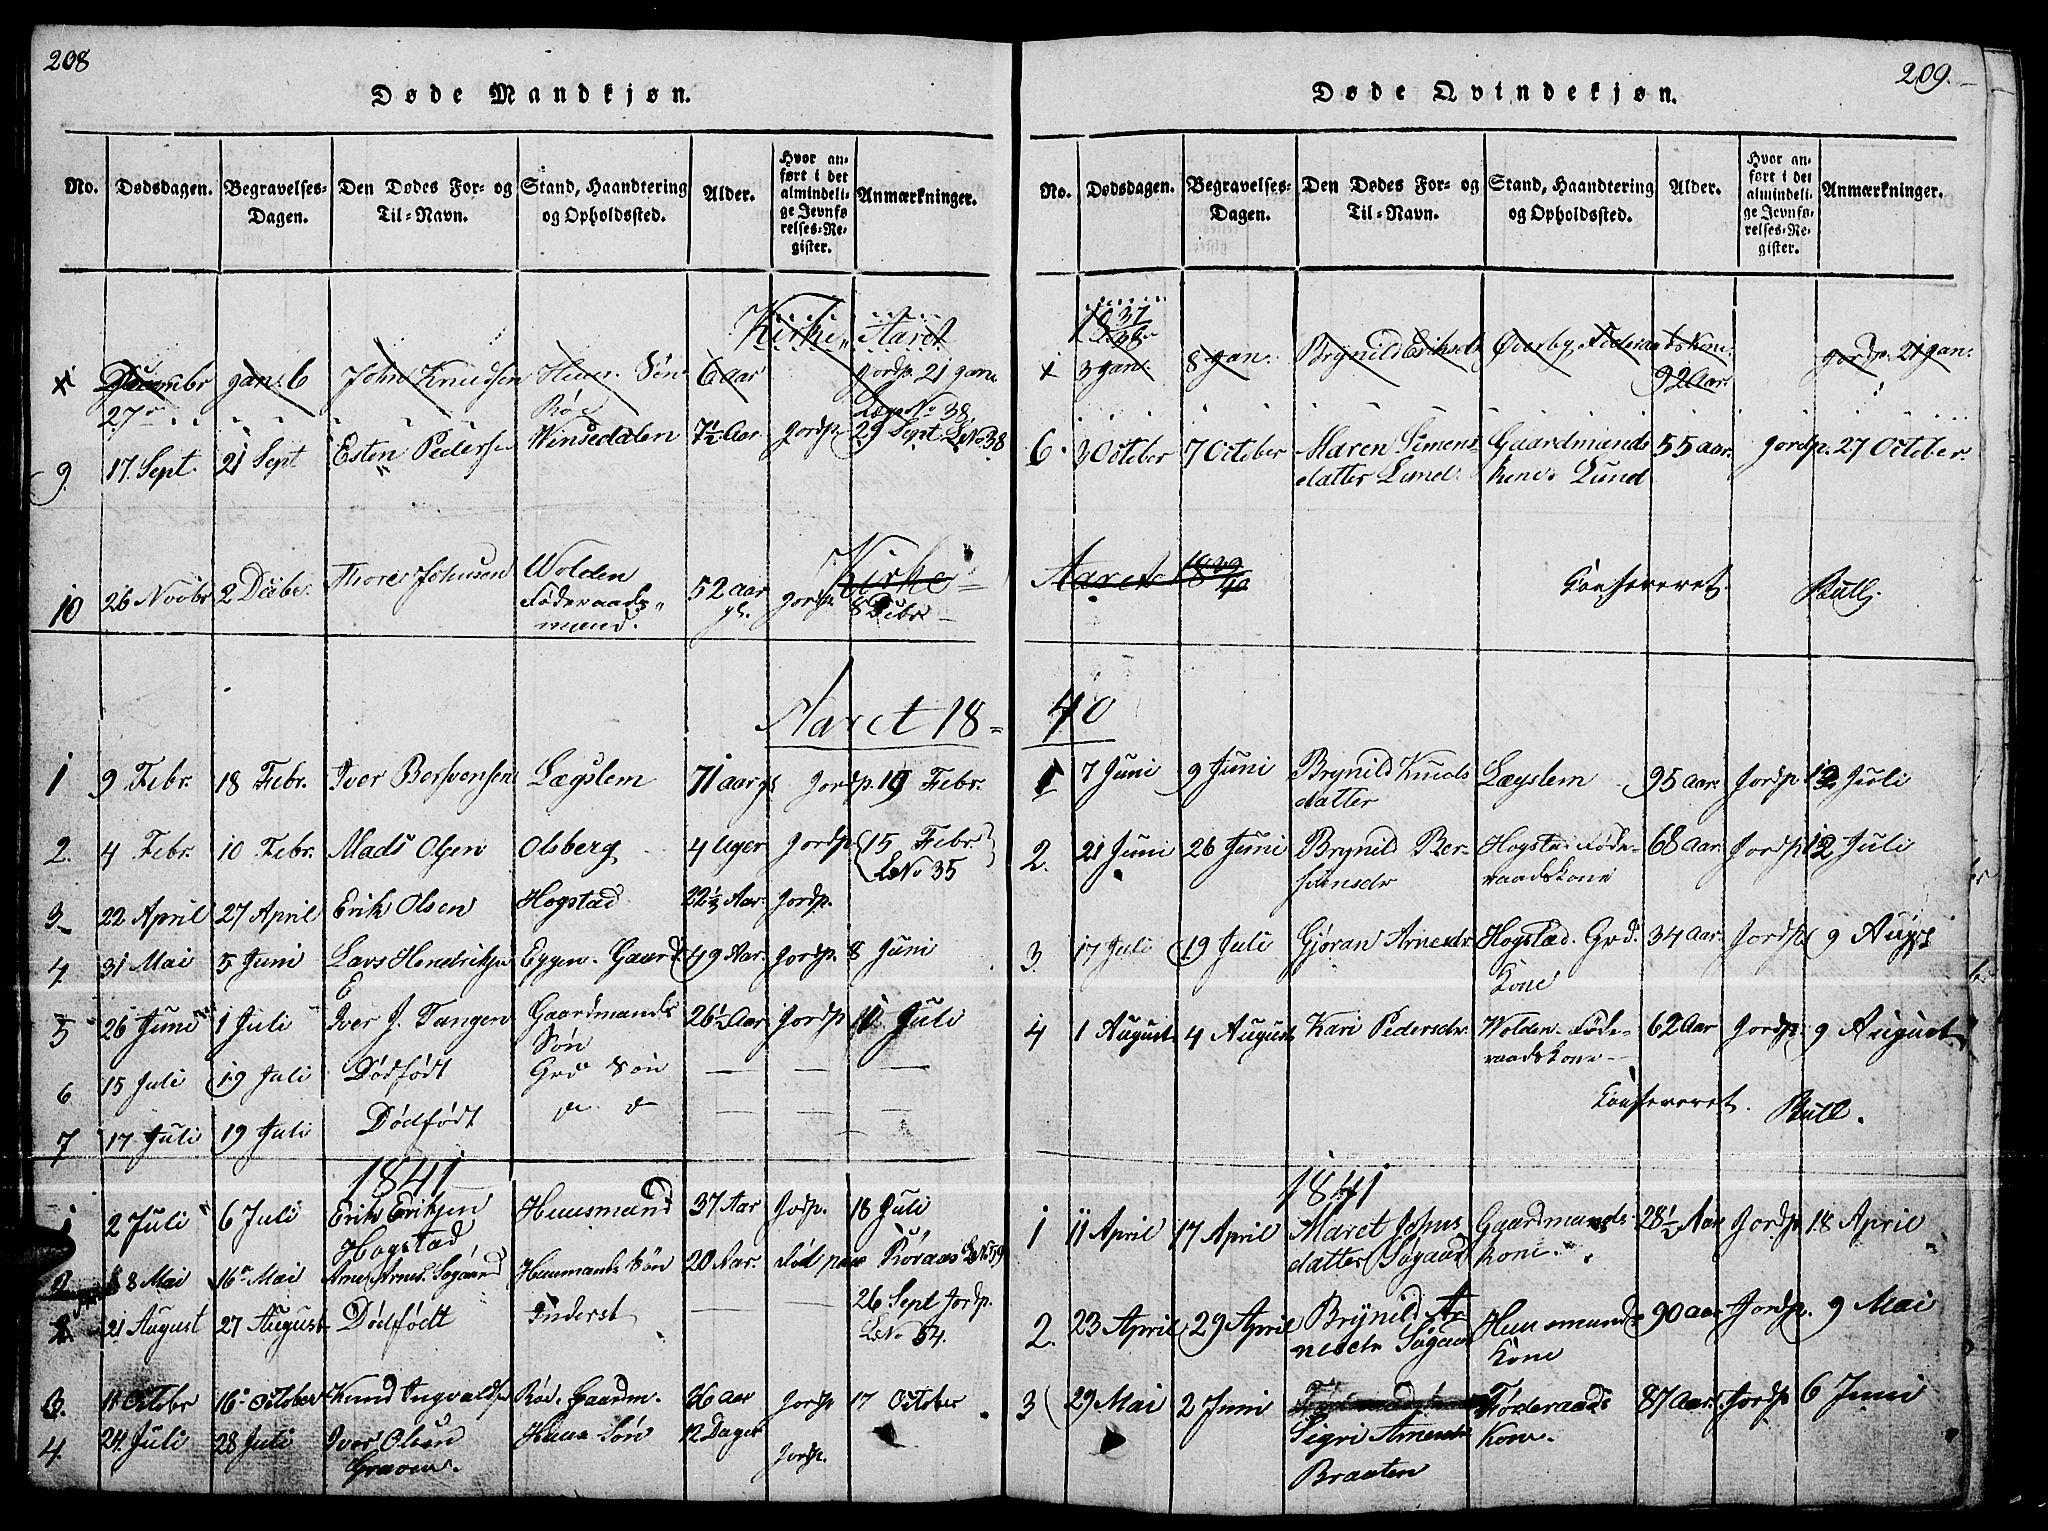 208
Døde Mandkjøn.
No. Dødsdagen. Begravelses-Dagen. Den Dødes For- og Til-Navn. Stand, Haandtering og Opholdssted. Alder. Hvor anført i det almindelige Jevnførelses-Register. Anmærkninger.
Kirke Aaret
1 Decembr 27 Jan: 6 John Knudsen Huus. Søn Røe 6 aar Jordp. 21 Jan:
9. 17. Sept. 21 Sept Esten Pedersen Winsedalen 7½ Aar Jordp. 29 Sept. No 38
Kirke
10 26 Novbr 2 Decbr. Thore Johnsen Wolden Føderaads mand. 52 aar Jordp. 8 Debr
Aaret 18=
1 9 Febr. 18 Febr. Iver Bersvensen Lægslem 71 aar Jordp. 19 Febr.
2. 4 Febr. 10 Febr. Mads Olsen Olsberg 4 Uger Jordp. 15 Febr No 35
3 22 April 27 April Erik Olsen Hogstad 22½ Aar. Jordp.
4 31 Mai 5 Juni Lars Hendriksen Eggen. Gaard 49 Aar. Jordp. 8 Juni
5 26 Juni 1 Juli Iver J. Tangen Gaardmands Søn 26½ Aar Jordp 11 Juli
6 15 Juli 19 Juli Dødfødt Grd Søn — — —
7 17 Juli 19 Juli Dødfødt — — —
1841
1 2 Juli 6 Juli Erik Eriksen Hogstad Huusmand 37 Aar Jordp. 18 Juli
2 8 Mai 16 Mai Arne Arnes. Søgaard Huusmands Søn 20 Aar. Død paa Røraas No 59
21 August 27 August Dødfødt Inderst — 26 Sept Jordp. No 54.
3. 11 Octobr 16 October Knud Ingvaldsen Røe. Gaardm. 36 aar Jordp 17 October
4. 24. Juli 28 Juli Iver Olsen Graven. Huus Søn 12 Dager Jordp.
209.
Døde Qvindekjøn.
No. Dødsdagen. Begravelses-Dagen. Den Dødes For- og Til-Navn. Stand, Haandtering og Opholdssted. Alder. Hvor anført i det almindelige Jevnførelses-Register. Anmærkninger.
1837/38
1 3 Jan. 8 Jan. Brynild Eriksdt Øverby Føderaadskone. 92 Aar Jordp. 21 Jan.
6. 3 October 7 October Maren Simensdatter Lund. Gaardmands kone. Lund 55 aar. Jordp. 27 October.
Aaret 1839/40
Confereret. Bull.
40
1 7 Juni 9 Juni Brynild Knudsdatter Lægslem 95 aar. Jordp. 12 Juli
2. 21 Juni 26 Juni Brynild Bersvensdr Hogstad Føderaadskone 68 aar. Jordp 12 Juli
3. 17 Juli 19 Juli Gjøran Arnesdr Hogstad. Grd. Kone 34 aar. Jordp. 9 August
4 1 August 4 August Kari Pedersdr. Wolden Føderaadskone 62 Aar Jordp. 9 August
Confereret. Bull.
1841
1 11 April 17 April Maret Johnsdatter Søgaard Gaardmands kone. 28½ Aar Jordp. 18 April
2. 23 April 29 April Brynild Arnesdtr Søgaard Huusmands Kone 90 aar Jordp. 9 Mai
3 29 Mai 2 Juni Sigri Arnesdtr Braaten Føderaads Kone. 87 aar. Jordp 6 Juni